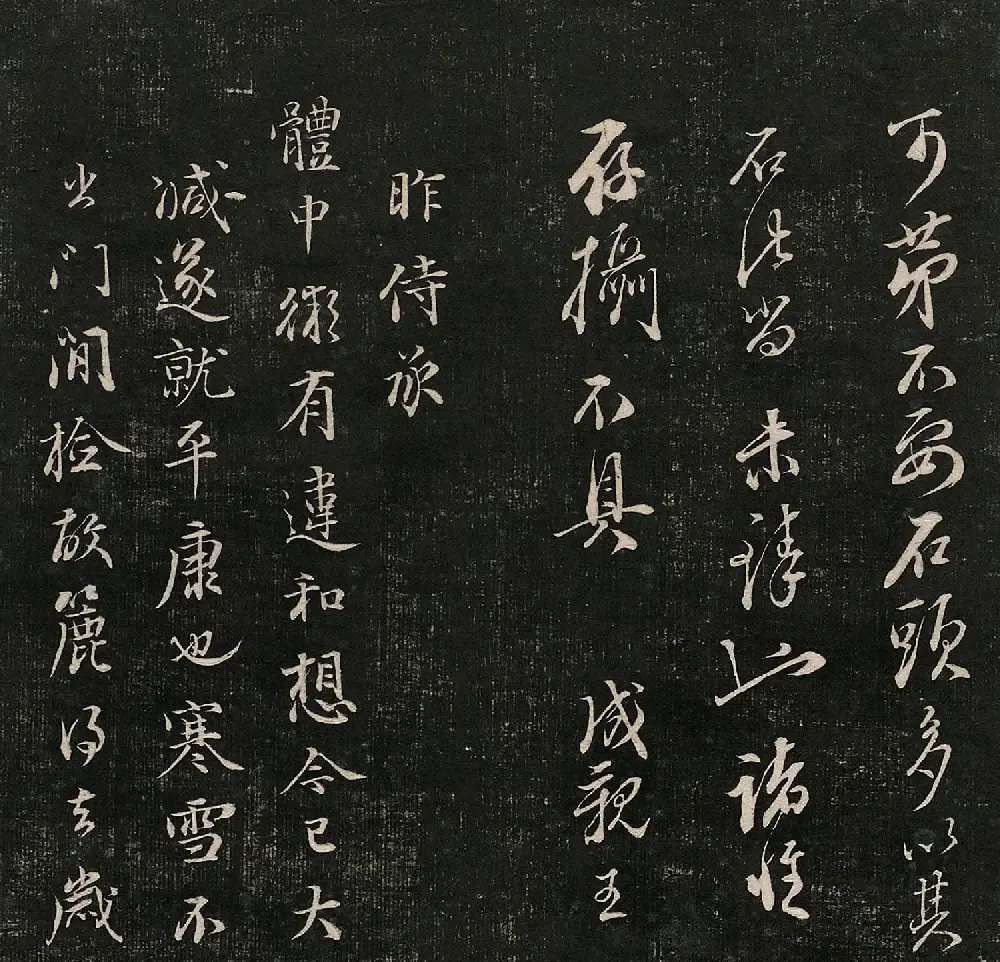 可第不要石頭多以其
石法尚未臻山諸惟
存攝不具　成親王
昨侍承
體中微有違和想今已大
減遂就平康也寒雪不
出門間檢故簏得去歲